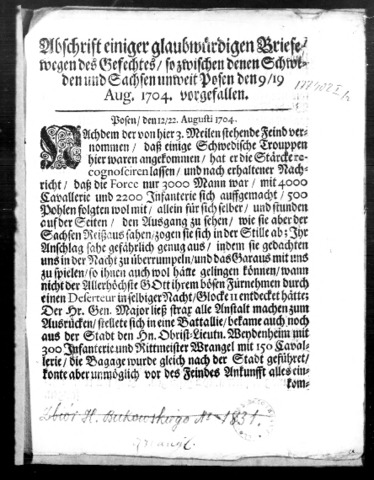 Abschrift einiger glaubwürdigen Briefe/
wegen des Gefechtes/ so zwischen denen Schwe-
den und Sachsen unweit Posen den 9/19
Aug. 1704. vorgefallen.
Posen/ den 12/22. Augusti 1704.
NAchdem der von hier 3. Meilen stehende Feind ver-
nommen/ daß einige Schwedische Trouppen
hier waren angekommen/ hat er die Stärcke re-
cognosciren lassen/ und nach erhaltener Nach-
richt/ daß die Force nur 3000 Mann war/ mit 4000
Cavallerie und 2200 Infanterie sich auffgemacht/ 500
Pohlen folgten wol mit/ allein für sich selber/ und stunden
auf der Seiten/ den Ausgang zu sehen/ wie sie aber der
Sachsen Reißaus sahen/ zogen sie sich in der Stille ab; Ihr
Anschlag sahe gefährlich genug aus/ indem sie gedachten
uns in der Nacht zu überrumpeln/ und das Garaus mit uns
zu spielen/ so ihnen auch wol hätte gelingen können/ wann
nicht der Allerhöchste GOtt ihrem bösen Fürnehmen durch
einen Deserteur in selbiger Nacht/ Glocke 11 entdecket hätte;
Der Hr. Gen. Major ließ strax alle Anstalt machen zum
Ausrücken/ stellete sich in eine Battallie/ bekame auch noch
aus der Stadt den Hn. Obrist-Lieutn. Weydenheim mit
300 Infanterie und Rittmeister Wrangel mit 150 Caval-
lerie/ die Bagage wurde gleich nach der Stadt geführet/
konte aber unmöglich vor des Feindes Ankunfft alles ein-
kom-
Zbior H. Bukowskiego 1831.